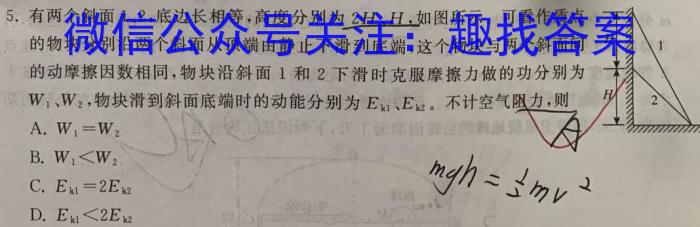 5. 有两个斜面1、2,底边长相等,高度分别为 2H、H,如图所示,可看作质点
微信公众号关注:趣找答案
的物块分别沿两个斜面从顶端由静止下滑到底端,这个物块与两个斜面间
的动摩擦因数相同,物块沿斜面 1 和 2 下滑时克服摩擦力做的功分别为
W₁、W₂,物块滑到斜面底端时的动能分别为 Eₖ₁、Eₖ₂。不计空气阻力,则
A. W₁=W₂
B. W₁<W₂
C. Eₖ₁=2Eₖ₂
D. Eₖ₁<2Eₖ₂
A
mgh=½mv²
1
2
H